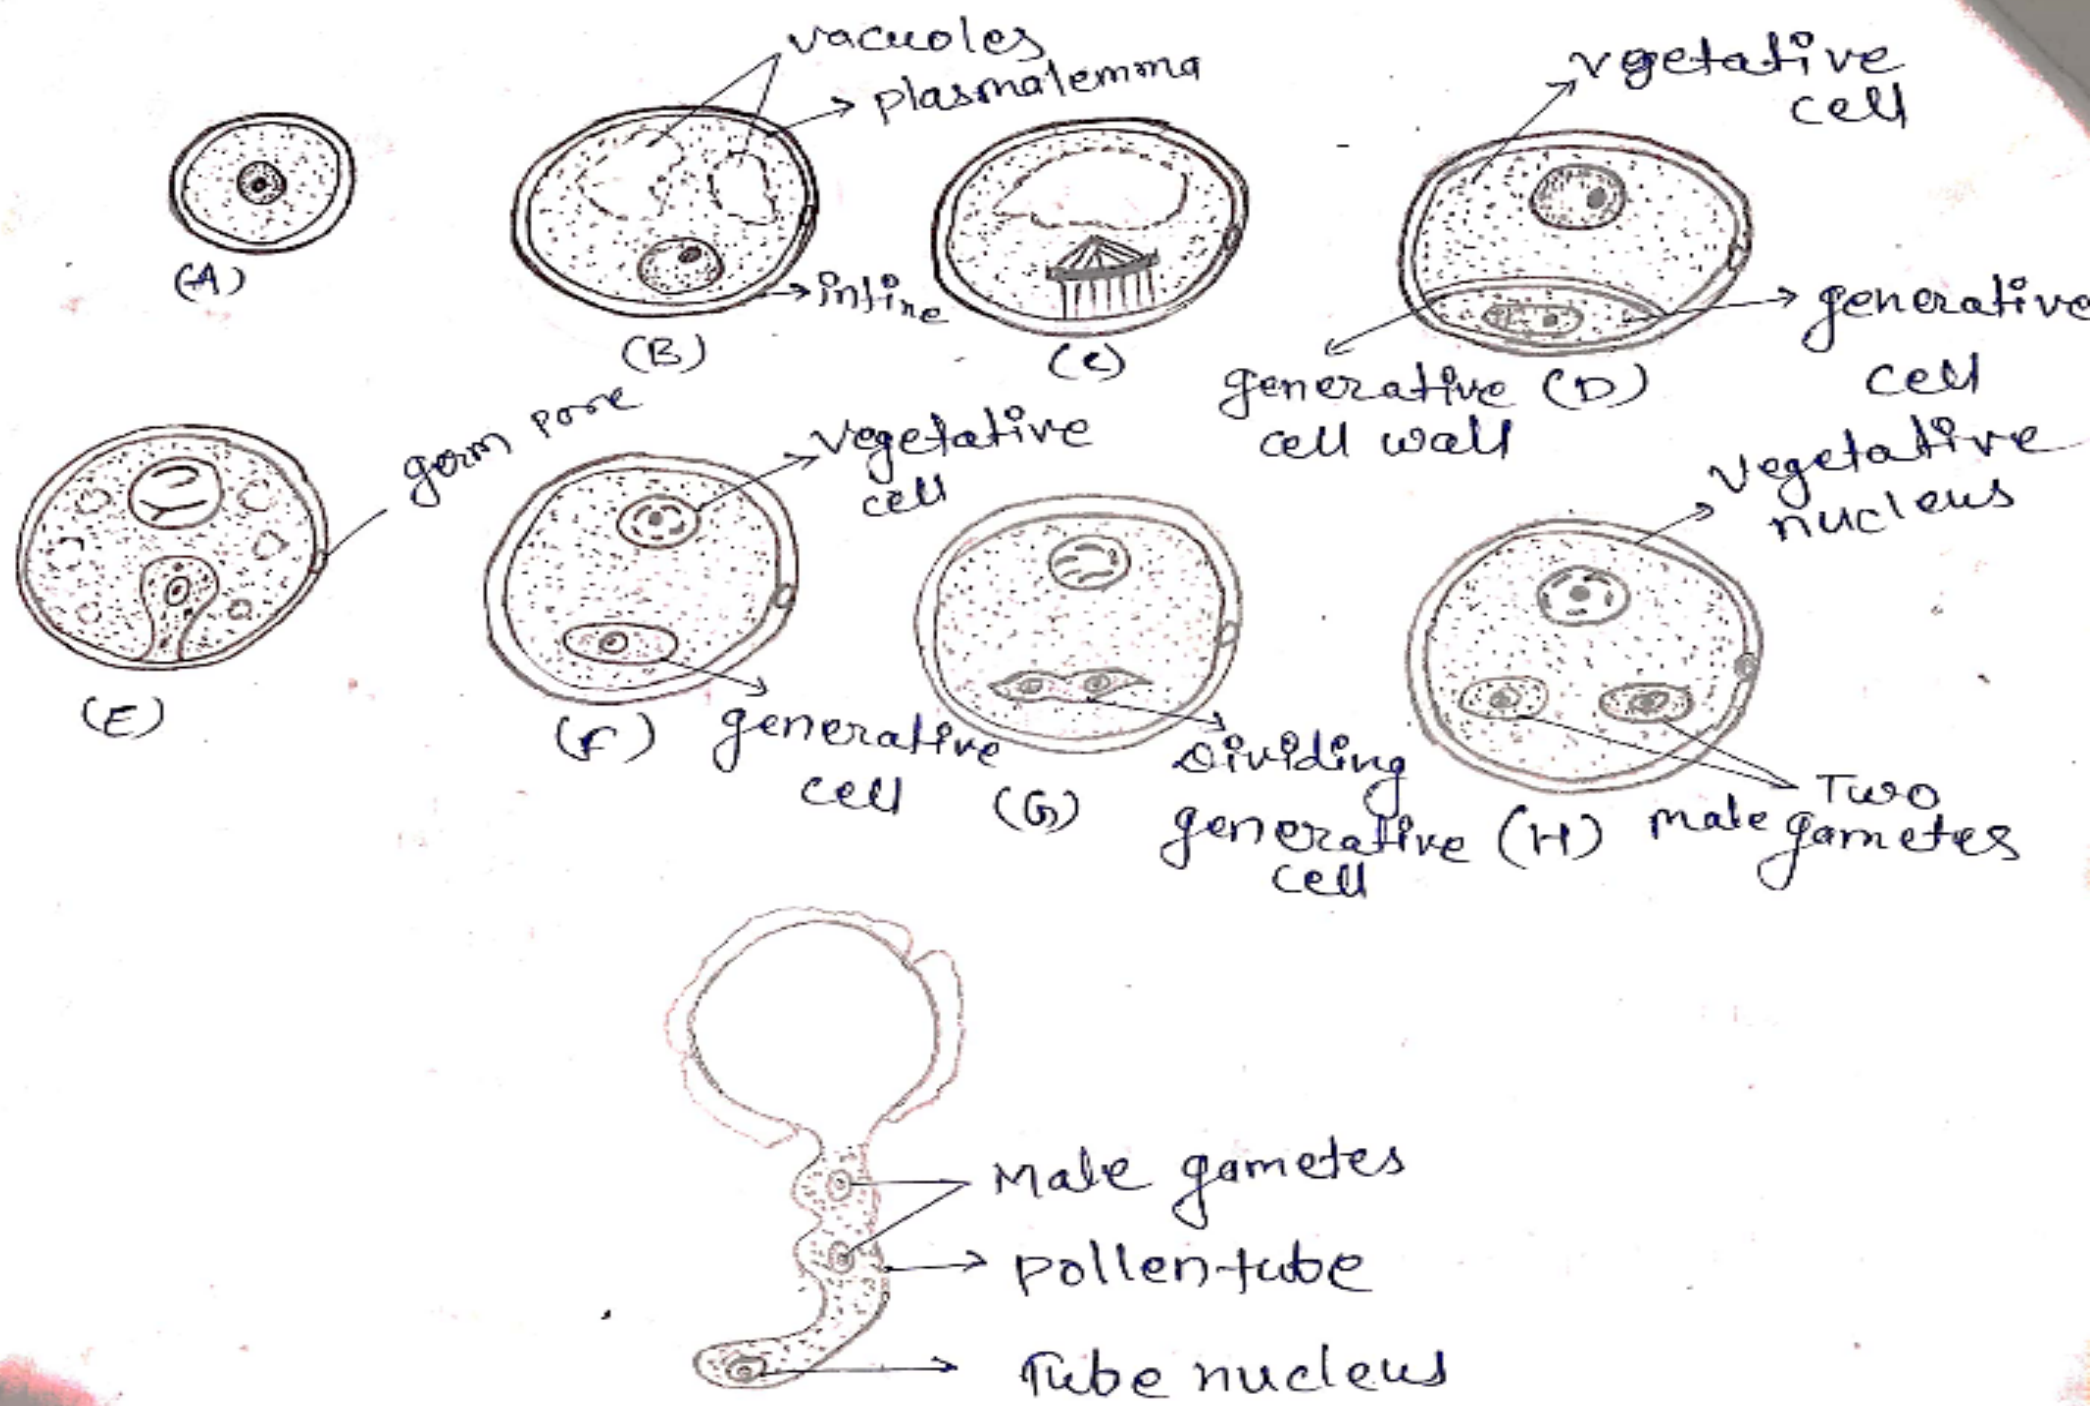 vacuoles
plasmalemma
vgetative
cell
(A)
intine
(B)
(C)
generative
cell
generative
cell wall
(D)
germ pore
vegetative
cell
vegetative
nucleus
(E)
(F)
generative
cell
(G)
Dividing
generative
cell
(H)
Two
male gametes
Male gametes
pollen-tube
Tube nucleus